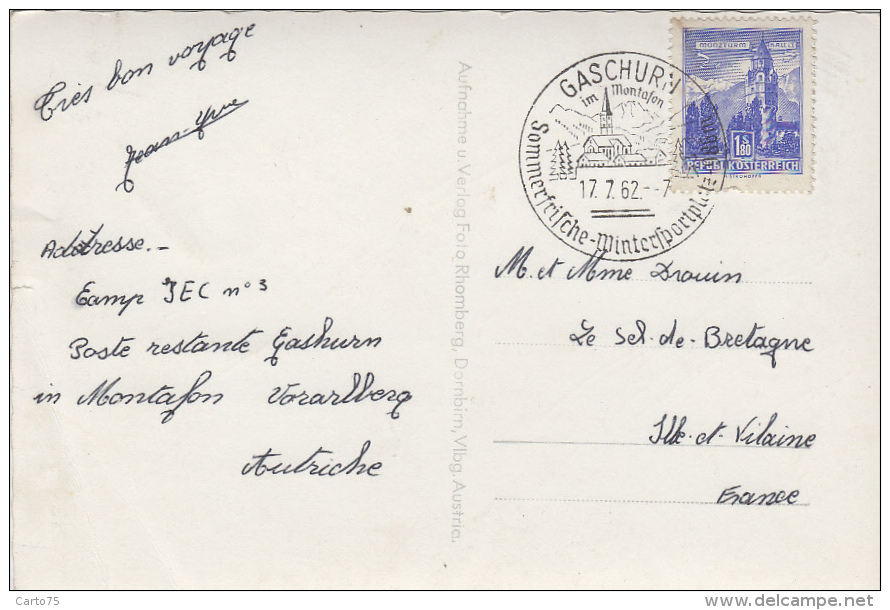 Très bon voyage
Jean-Yve
Addresse.-
Camp JEC n° 3
Poste restante Gashurn
in Montafon Vorarlberg
Autriche
Aufnahme u. Verlag Foto Rhomberg, Dornbirn, Vlbg. Austria.
GASCHURN
im Montafon
17.7.62.--7
Sommerfrische-Wintersportplatz
MÜNZTURM HALL i.T.
1.80 S
REPUBLIK ÖSTERREICH
M. et Mme Drouin
Le Sel-de-Bretagne
Ille-et-Vilaine
France
Carto75
delcampe.net